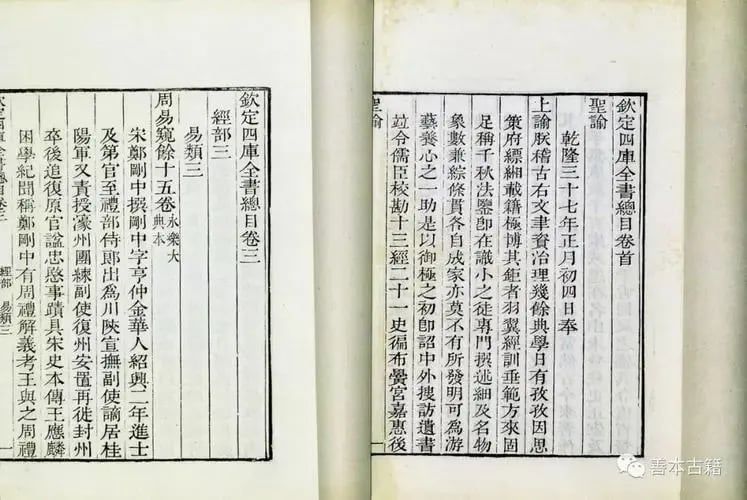 欽定四庫全書總目卷首
聖諭
乾隆三十七年正月初四日奉
上諭朕稽古右文聿資治理幾餘典學日有孜孜因思
策府縹緗載籍極博其鉅者羽翼經訓垂範方來固
足稱千秋法鑒卽在識小之徒專門撰述細及名物
象數兼綜條貫各自成家亦莫不有所發明可爲游
藝養心之一助是以御極之初卽詔中外搜訪遺書
竝令儒臣校勘十三經二十一史徧布黌宮嘉惠後
聖諭
一
欽定四庫全書總目卷三
經部三
易類三
周易窺餘十五卷永樂大典本
宋鄭剛中撰剛中字亨仲金華人紹興二年進士
及第官至禮部侍郎出爲川陝宣撫副使謫居桂
陽軍又責授濠州團練副使復州安置再徙封州
卒後追復原官諡忠愍事蹟具宋史本傳王應麟
困學紀聞稱鄭剛中有周禮解義考王與之周禮
欽定四庫全書總目卷三 經部 易類三
善本古籍